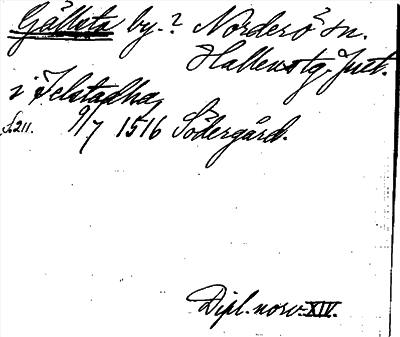 Gällsta by.? Norderö sn.
Hallens tg. Jmt.
i Jelstadha,
S.211. 9/7 1516 Södergård.
Dipl. norv. XIV.